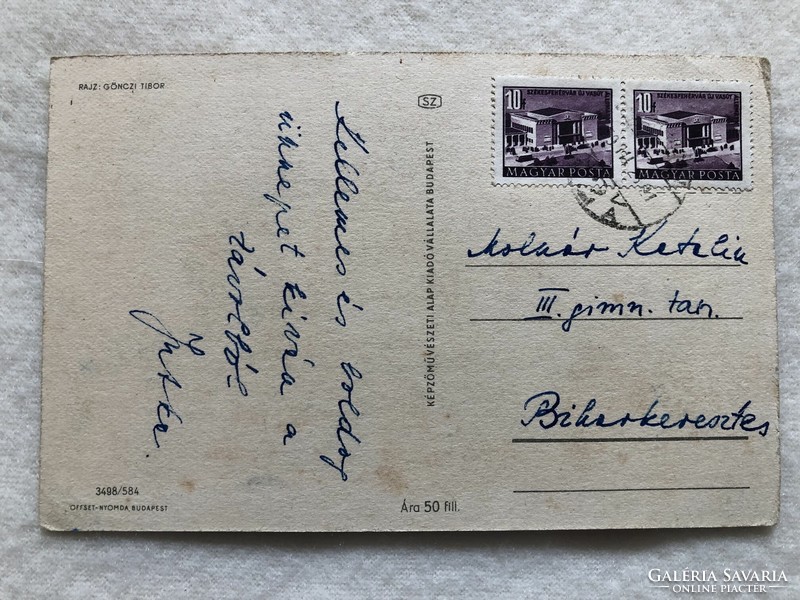 RAJZ: GÖNCZI TIBOR
Kellemes és boldog
ünnepet kíván a
távolból
Jutka.
3498/584
OFFSET-NYOMDA, BUDAPEST
SZ
KÉPZŐMŰVÉSZETI ALAP KIADÓVÁLLALATA BUDAPEST
Ára 50 fill.
10f
SZÉKESFEHÉRVÁR ÚJ VASÚTÁLLOMÁS
MAGYAR POSTA
10f
SZÉKESFEHÉRVÁR ÚJ VASÚTÁLLOMÁS
MAGYAR POSTA
Molnár Katalin
III. gimn. tan.
Biharkeresztes
GALÉRIA SAVARIA
ONLINE PIACTÉR